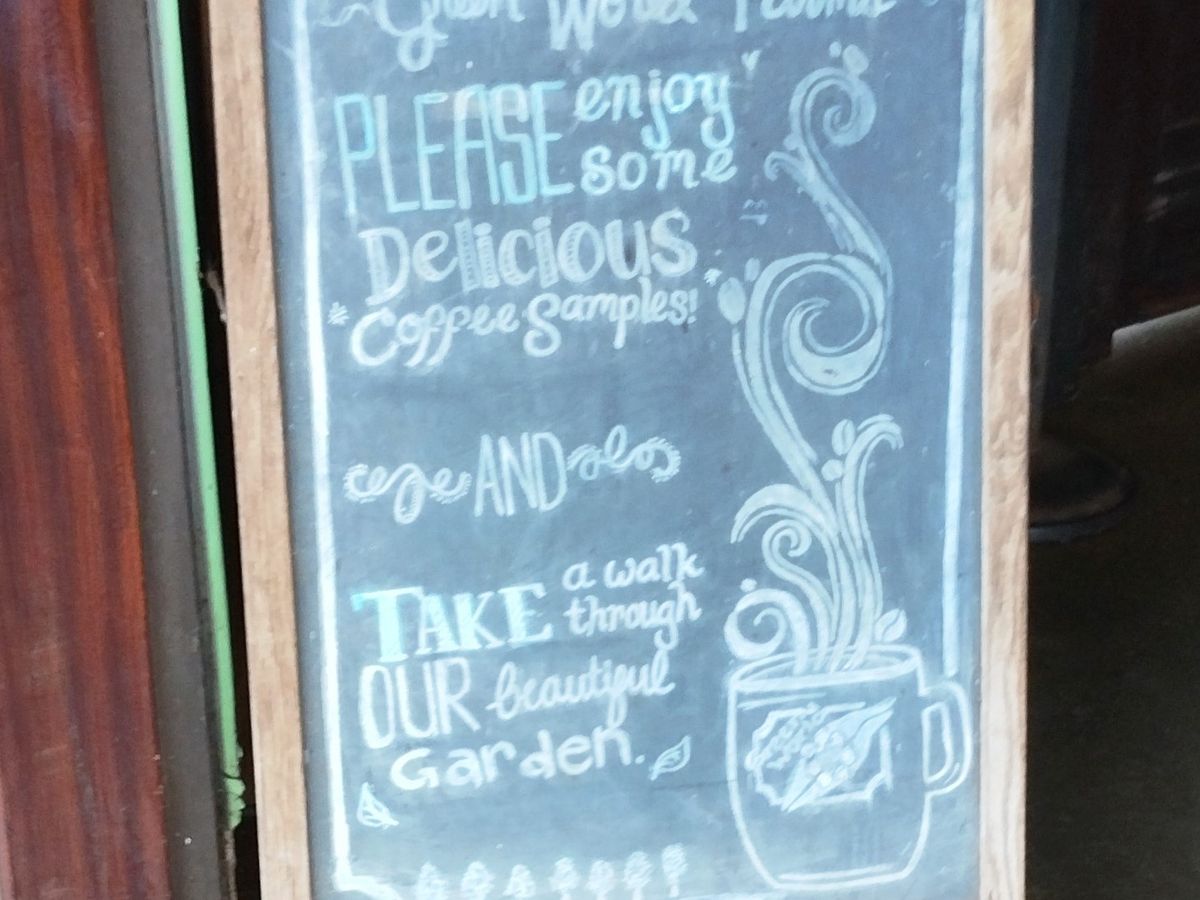 Green World
PLEASE enjoy
some
Delicious
Coffee Samples!
AND
TAKE a walk
through
OUR beautiful
Garden.